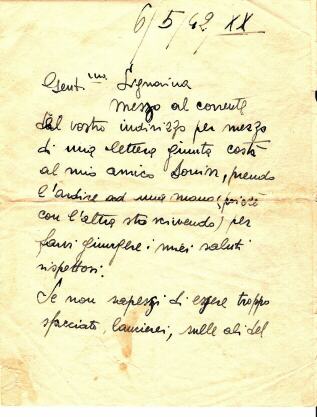 6/5/42 XX
Gentma Signorina
Messo al corrente
dal vostro indirizzo per mezzo
di una lettera giunta costà
al mio amico, prendo
l'ardire ad una mano (poichè
con l'altra sto scrivendo) per
farvi giungere i miei saluti
rispettosi.
Se non sapessi di essere troppo
spacciati, lancierei, sulle ali del